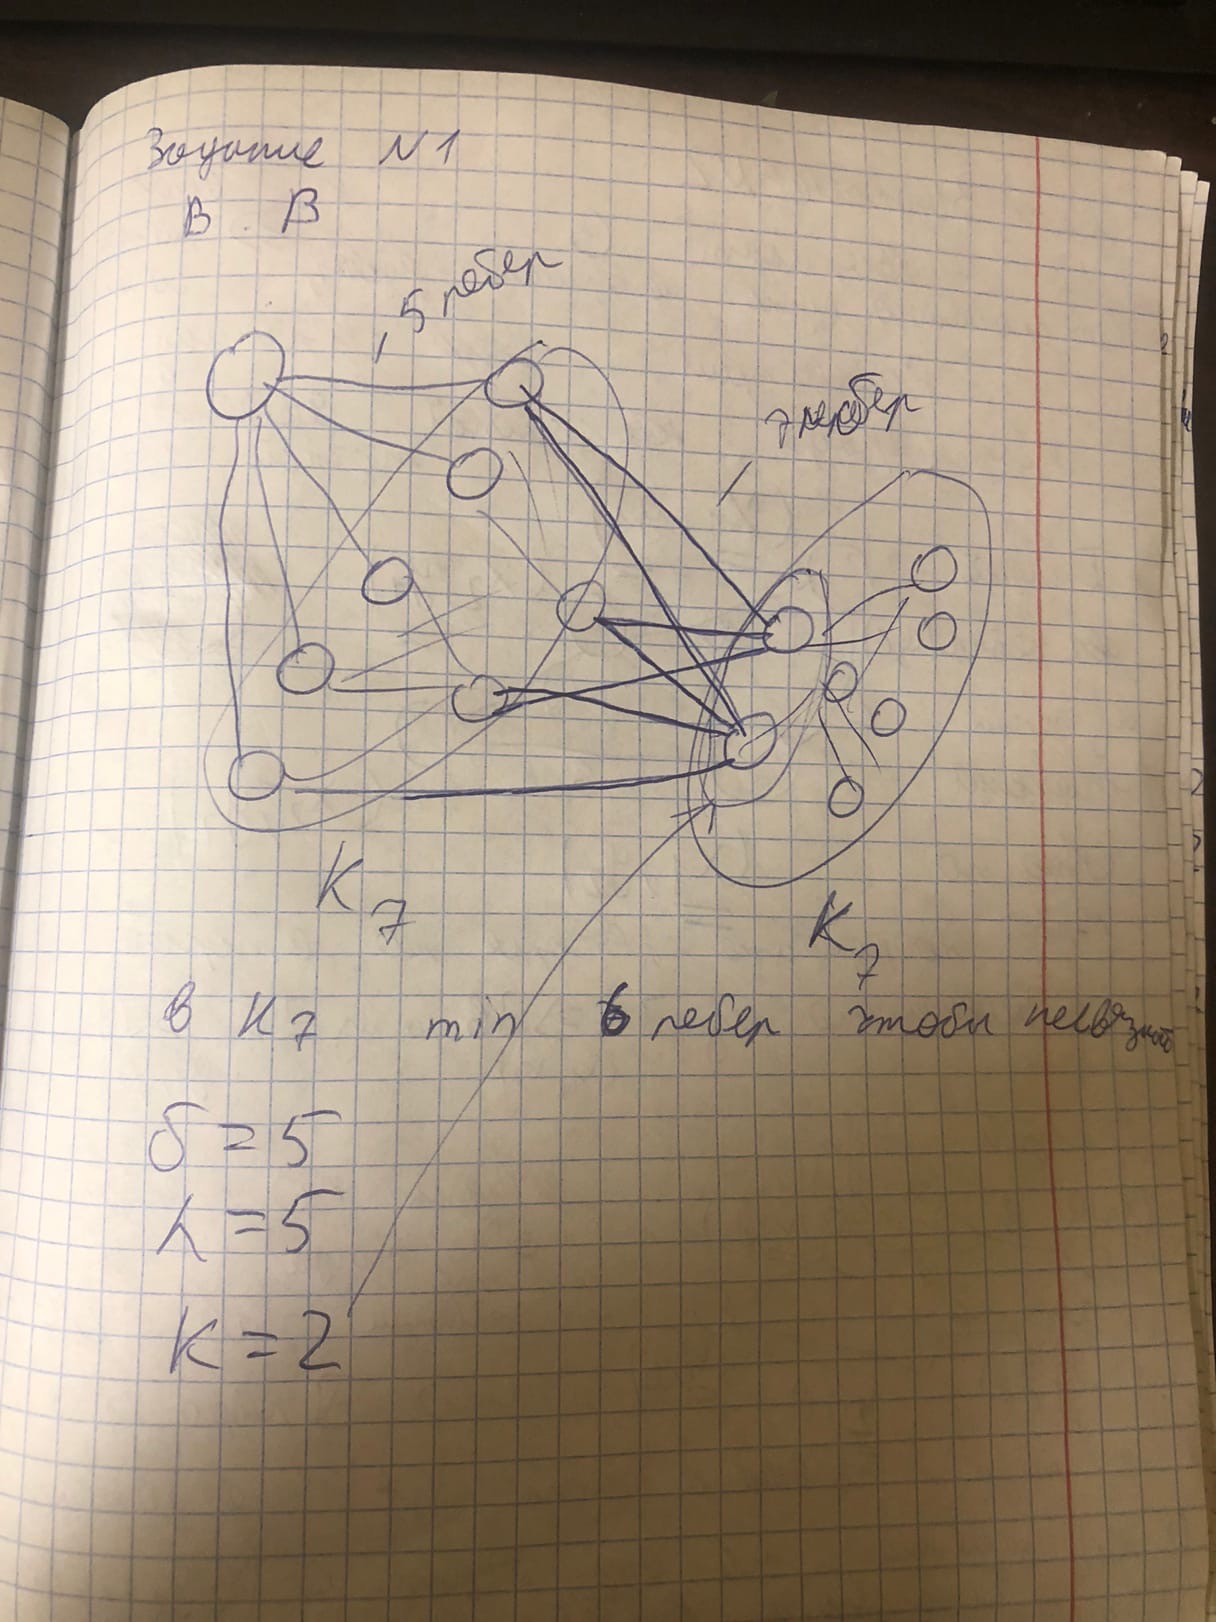 Задание N1
В В
5 ребер
7 ребер
K7
K7
в K7 min 6 ребер чтобы несвязной
δ = 5
λ = 5
K = 2